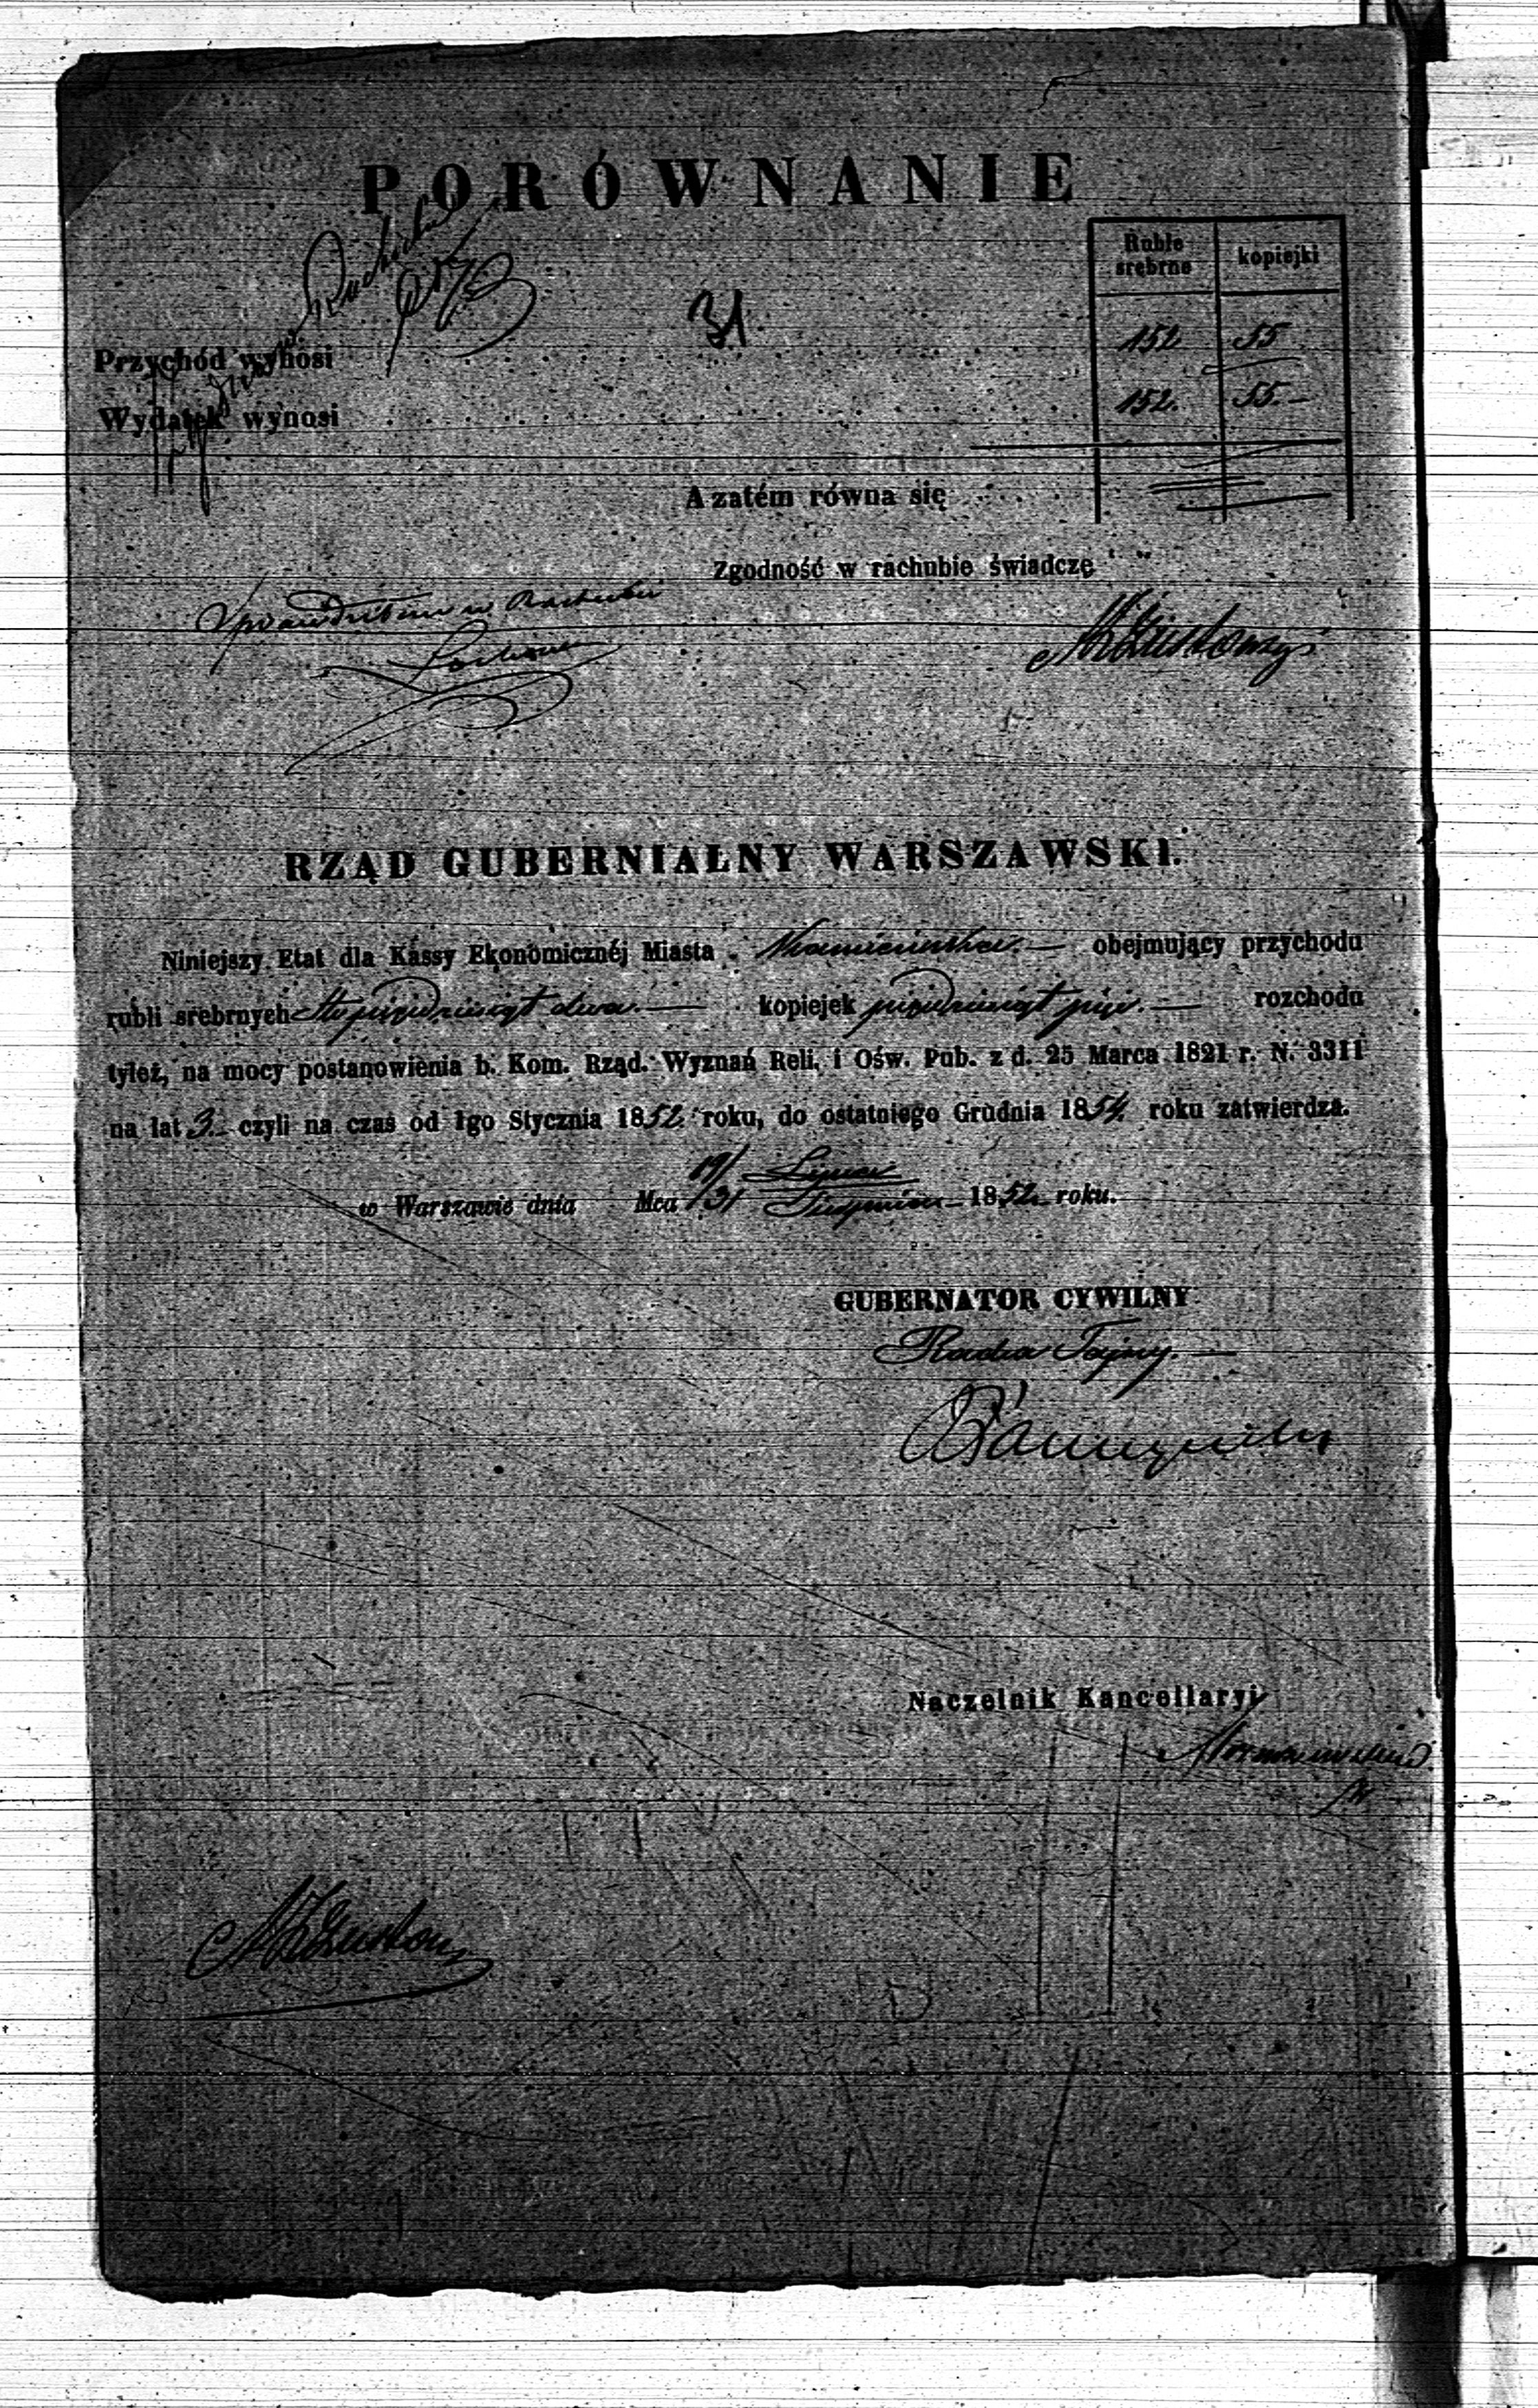 PORÓWNANIE
Ruble srebrne
kopiejki
31
Przychód wynosi 152 55
Wydatek wynosi 152. 55.
A zatém równa się
Zgodność w rachubie świadczę
Sprawdziłem w Rachubie
RZĄD GUBERNIALNY WARSZAWSKI.
Niniejszy Etat dla Kassy Ekonomicznéj Miasta Kamieńska obejmujący przychodu
rubli srebrnych sto pięćdziesiąt dwa. kopiejek pięćdziesiąt pięć. rozchodu
tyleż, na mocy postanowienia b. Kom. Rząd. Wyznań Reli. i Ośw. Pub. z d. 25 Marca 1821 r. N. 3311
na lat 3 czyli na czas od 1go Stycznia 1852 roku, do ostatniego Grudnia 1854 roku zatwierdza.
w Warszawie dnia Mca 19/31 Lipca Sierpnia 1852 roku.
GUBERNATOR CYWILNY
Radca Tajny.
Naczelnik Kancellaryi